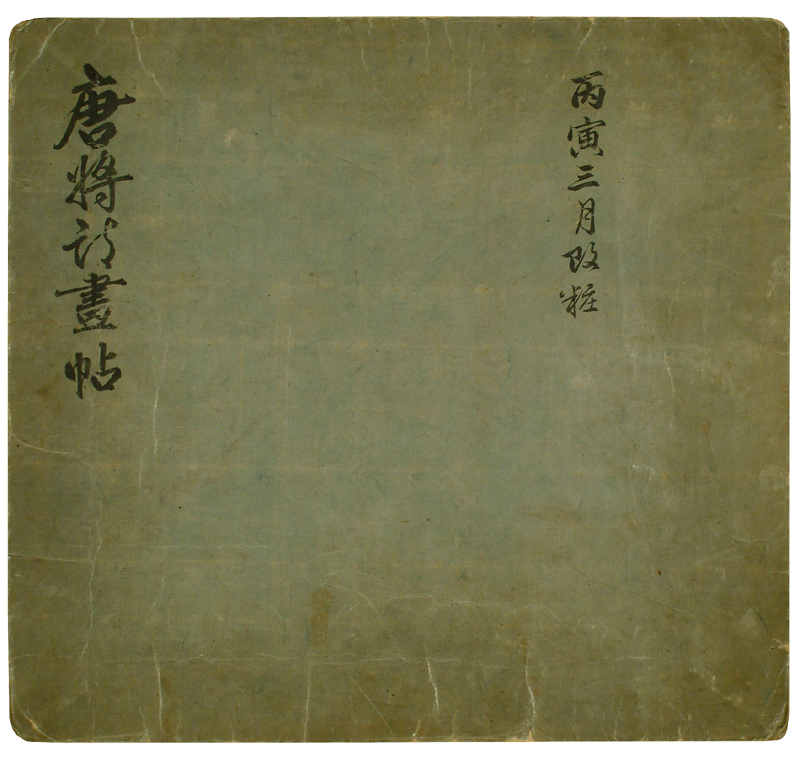 丙寅三月改粧
唐將詩畫帖